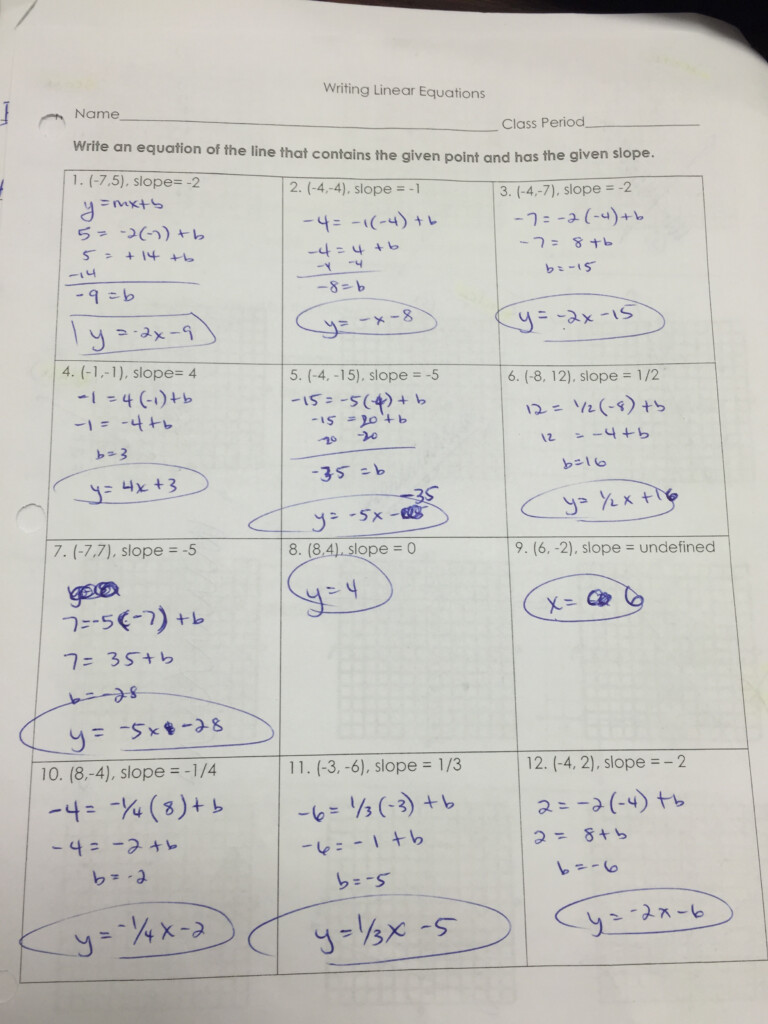 Writing Linear Equations
Name Class Period
Write an equation of the line that contains the given point and has the given slope.
1. (-7,5), slope= -2
y=mx+b
5 = -2(-7) + b
5 = +14 + b
-14
-9 = b
y = -2x-9
2. (-4,-4), slope = -1
-4 = -1(-4) + b
-4 = 4 + b
-4 -4
-8=b
y= -x-8
3. (-4,-7), slope = -2
-7= -2(-4)+b
-7 = 8+b
b=-15
y= -2x-15
4. (-1,-1), slope= 4
-1 = 4(-1)+b
-1 = -4+b
b=3
y= 4x+3
5. (-4, -15), slope = -5
-15=-5(-4)+b
-15 = 20+b
-20 -20
-35 =b
-35
y= -5x-
6. (-8, 12), slope = 1/2
12 = 1/2(-8)+b
12 = -4+b
b=16
y= 1/2x+16
7. (-7,7), slope = -5
7=-5(-7)+b
7= 35+b
b=-28
y= -5x-28
8. (8,4), slope = 0
y=4
9. (6, -2), slope = undefined
x= 6
10. (8,-4), slope = -1/4
-4= -1/4(8)+b
-4= -2+b
b=-2
y=-1/4x-2
11. (-3, -6), slope = 1/3
-6= 1/3(-3)+b
-6=-1+b
b=-5
y=1/3x-5
12. (-4, 2), slope = – 2
2=-2(-4)+b
2= 8+b
b=-6
y=-2x-6